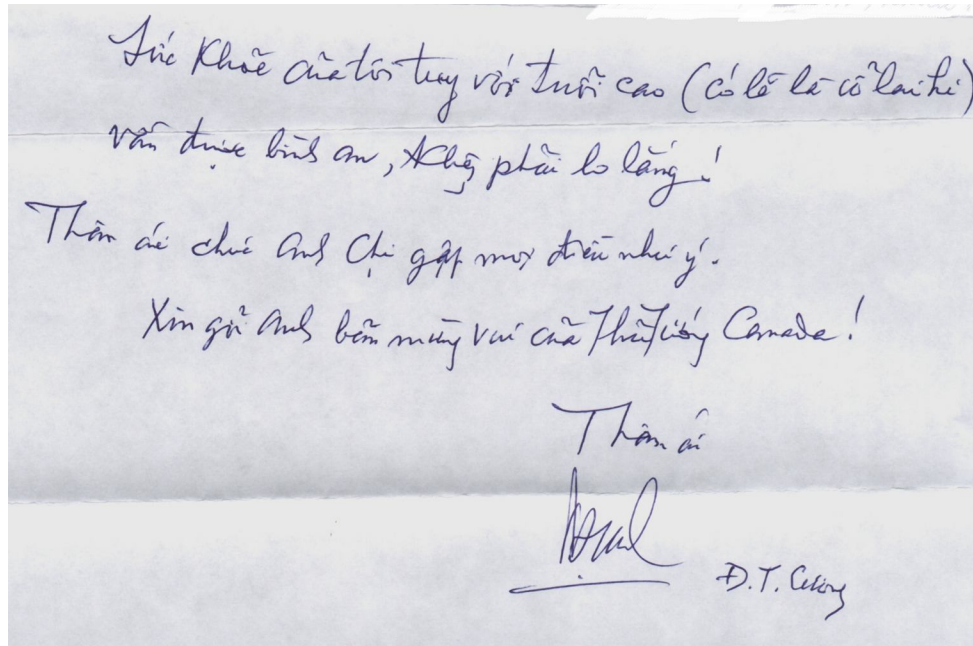 Sức Khõe cũa tôi tuy với tuỗi cao (có lẽ là cỗ lai hi)
vẫn được bình an, không phãi lo lắng!
Thân ái chúc anh Chị gặp mọi điều như ý.
Xin gữi anh bãn mừng vui cũa Thũ Tướng Canada!
Thân ái
Đ.T.